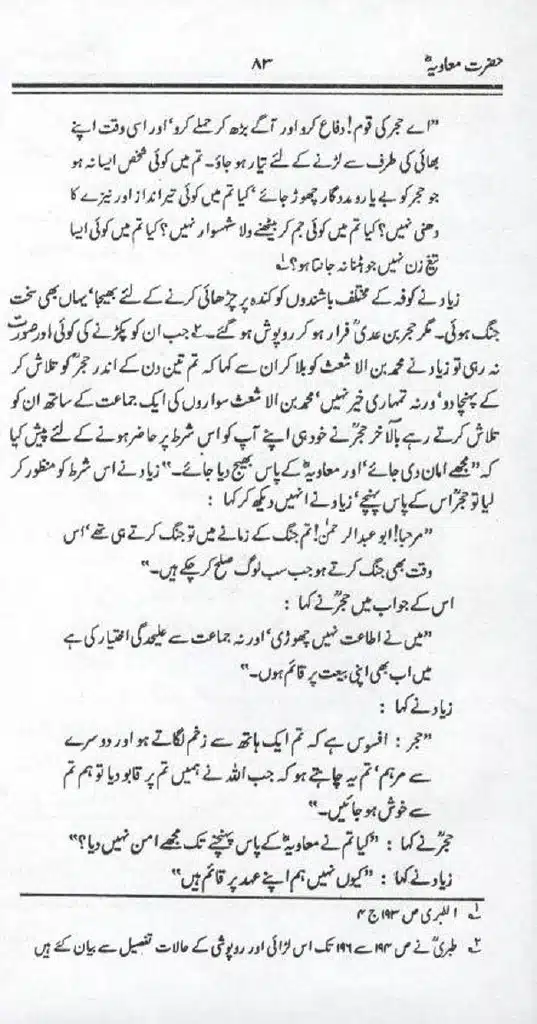 حضرت معاویہؓ ۸۳
”اے حجر کی قوم! دفاع کرو اور آگے بڑھ کر حملے کرو‘ اور اسی وقت اپنے
بھائی کی طرف سے لڑنے کے لئے تیار ہو جاؤ۔ تم میں کوئی شخص ایسا نہ ہو
جو حجر کو بے یار و مددگار چھوڑ جائے‘ کیا تم میں کوئی تیر انداز اور نیزے کا
دھنی نہیں؟ کیا تم میں کوئی جم کر بیٹھنے ولا شہسوار نہیں؟ کیا تم میں کوئی ایسا
تیغ زن نہیں جو ہٹنا نہ جانتا ہو؟ ۱؎
زیاد نے کوفہ کے مختلف باشندوں کو کندہ پر چڑھائی کرنے کے لئے بھیجا‘ یہاں بھی سخت
جنگ ہوئی۔ مگر حجر بن عدیؓ فرار ہو کر روپوش ہو گئے۔ ۲؎ جب ان کو پکڑنے کی کوئی اور صورت
نہ رہی تو زیاد نے محمد بن الاشعث کو بلا کر ان سے کہا کہ تم تین دن کے اندر حجرؓ کو تلاش کر
کے پہنچا دو‘ ورنہ تمہاری خیر نہیں‘ محمد بن الاشعث سواروں کی ایک جماعت کے ساتھ ان کو
تلاش کرتے رہے بالآخر حجرؓ نے خود ہی اپنے آپ کو اس شرط پر حاضر ہونے کے لئے پیش کیا
کہ ”مجھے امان دی جائے‘ اور معاویہؓ کے پاس بھیج دیا جائے۔“ زیاد نے اس شرط کو منظور کر
لیا تو حجرؓ اس کے پاس پہنچے‘ زیاد نے انہیں دیکھ کر کہا :
”مرحبا! ابو عبدالرحمٰن! تم جنگ کے زمانے میں تو جنگ کرتے ہی تھے‘ اس
وقت بھی جنگ کرتے ہو جب سب لوگ صلح کر چکے ہیں۔“
اس کے جواب میں حجرؓ نے کہا :
”میں نے اطاعت نہیں چھوڑی‘ اور نہ جماعت سے علیحدگی اختیار کی ہے
میں اب بھی اپنی بیعت پر قائم ہوں۔“
زیاد نے کہا :
”حجر : افسوس ہے کہ تم ایک ہاتھ سے زخم لگاتے ہو اور دوسرے
سے مرہم‘ تم یہ چاہتے ہو کہ جب اللہ نے ہمیں تم پر قابو دیا تو ہم تم
سے خوش ہو جائیں۔“
حجرؓ نے کہا : ”کیا تم نے معاویہؓ کے پاس پہنچنے تک مجھے امن نہیں دیا؟“
زیاد نے کہا : ”کیوں نہیں ہم اپنے عہد پر قائم ہیں“
۱؎ الطبری ص ۱۹۳ ج ۴
۲؎ طبریؒ نے ص ۱۹۴ سے ۱۹۶ تک اس لڑائی اور روپوشی کے حالات تفصیل سے بیان کئے ہیں